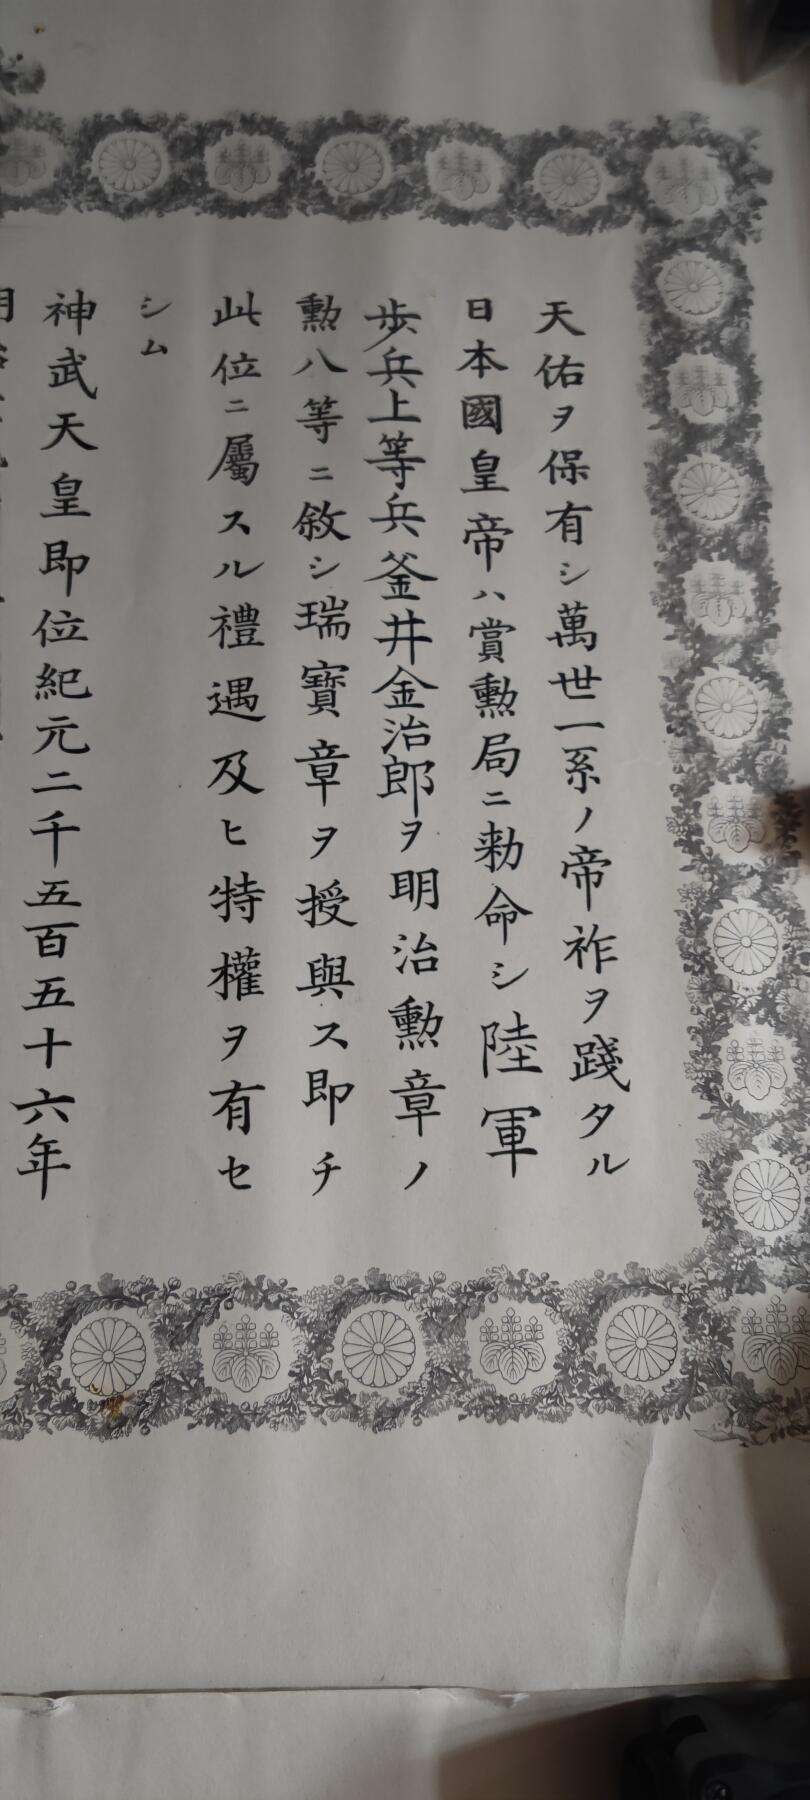 天佑ヲ保有シ萬世一系ノ帝祚ヲ踐タル
日本國皇帝ハ賞勲局ニ勅命シ陸軍
歩兵上等兵釜井金治郎ヲ明治勲章ノ
勲八等ニ敘シ瑞寶章ヲ授與ス即チ
此位ニ屬スル禮遇及ヒ特權ヲ有セ
シム
神武天皇即位紀元二千五百五十六年